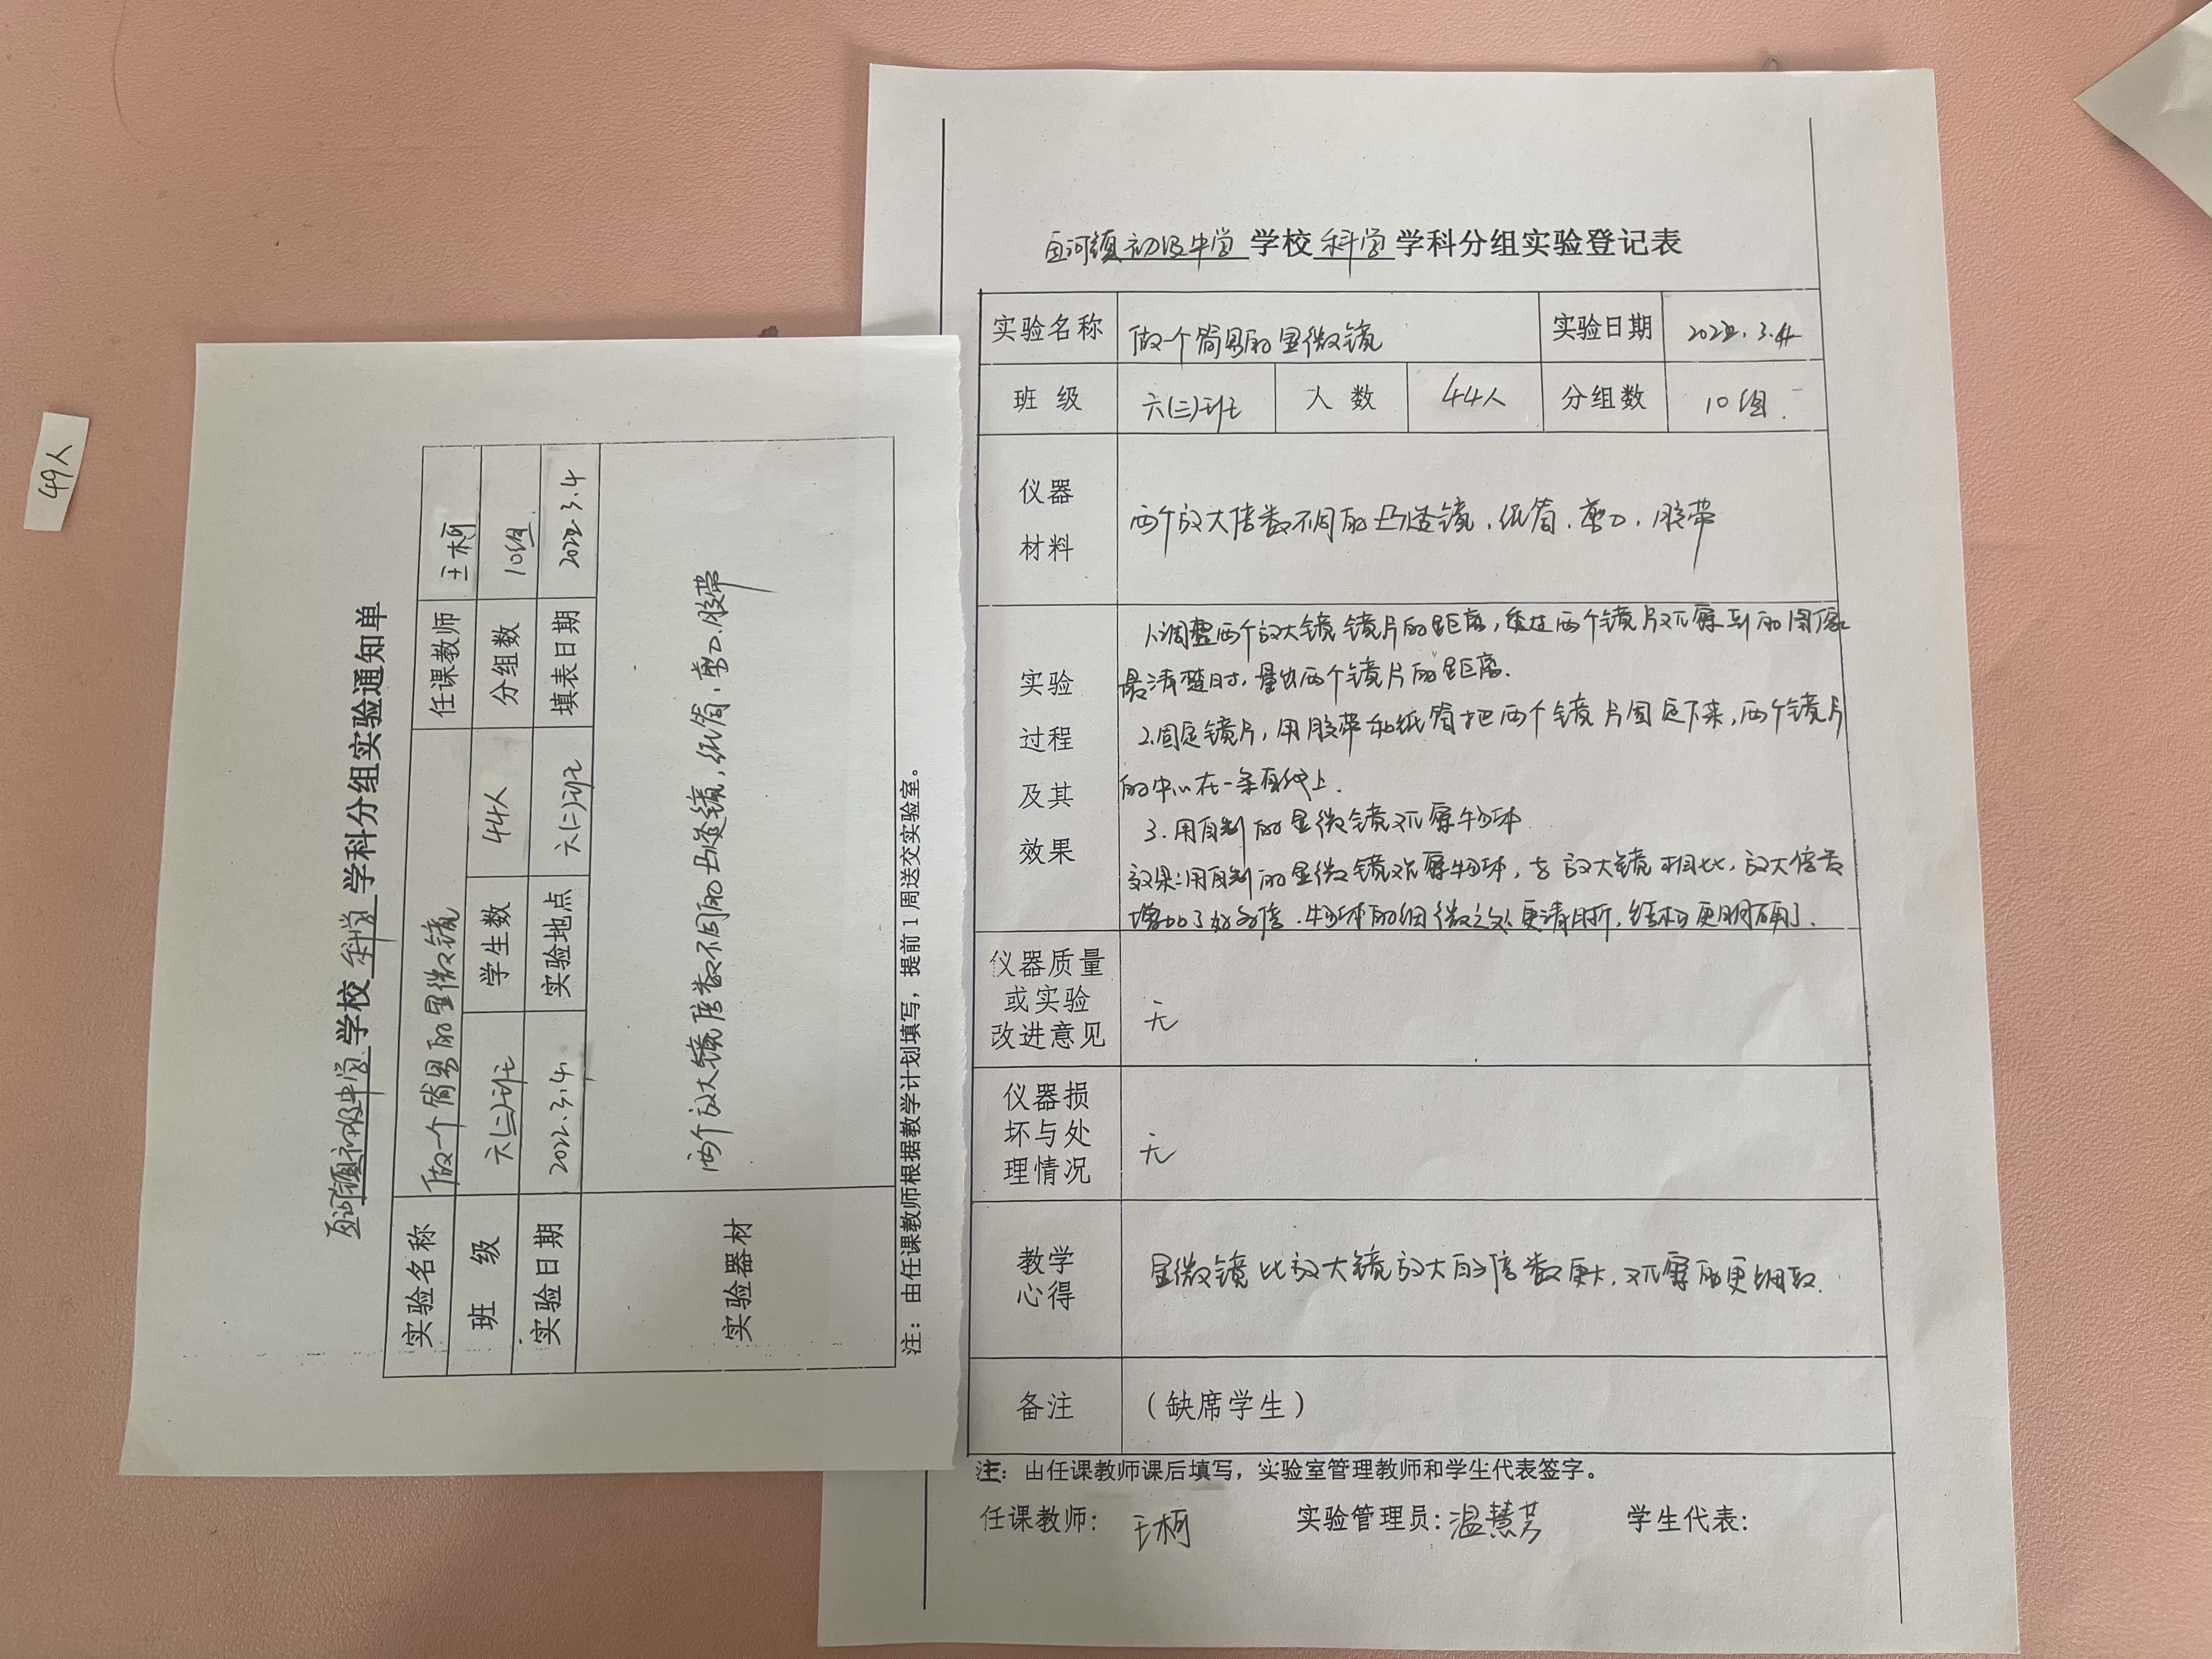 49人
学校 科学 学科分组实验通知单
实验名称 做一个简易的显微镜 任课教师 王柯
班 级 六(二)班 学生数 44人 分组数 10组
实验日期 2022.3.4 实验地点 六(二)班 填表日期 2022.3.4
实验器材 两个放大镜倍数不同的凸透镜,纸筒,剪刀.胶带
注:由任课教师根据教学计划填写,提前1周送交实验室。
河镇初级中学 学校 科学 学科分组实验登记表
实验名称 做一个简易的显微镜 实验日期 2022.3.4
班 级 六(三)班 人 数 44人 分组数 10组.
仪器
材料
两个放大倍数不同的凸透镜,纸筒.剪刀,胶带
实验
过程
及其
效果
1.调整两个放大镜镜片的距离,透过两个镜片观察到的图像
最清楚时,量出两个镜片的距离.
2.固定镜片,用胶带和纸筒把两个镜片固定下来,两个镜片
的中心在一条直线上.
3.用自制的显微镜观察物体
效果:用自制的显微镜观察物体,与放大镜相比,放大倍数
增加了好多倍.物体的细微之处更清晰,结构更明确了.
仪器质量
或实验
改进意见
无
仪器损
坏与处
理情况
无
教学
心得
显微镜比放大镜放大的倍数更大,观察的更细致.
备注 (缺席学生)
注:由任课教师课后填写,实验室管理教师和学生代表签字。
任课教师: 王柯 实验管理员: 温慧芳 学生代表: